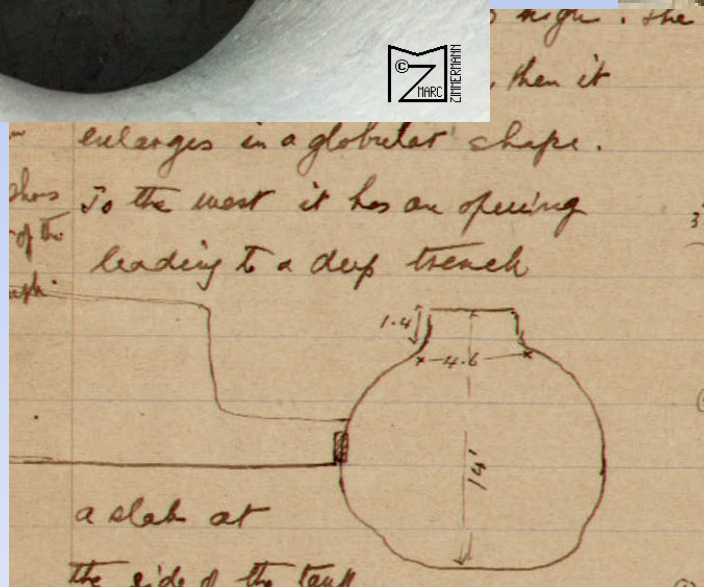 © MARC ZIMMERMANN
high. The
, then it
enlarges in a globular shape.
To the west it has an opening
of the
leading to a deep trench
1.4
4.6
14'
a slab at
the side of the tank